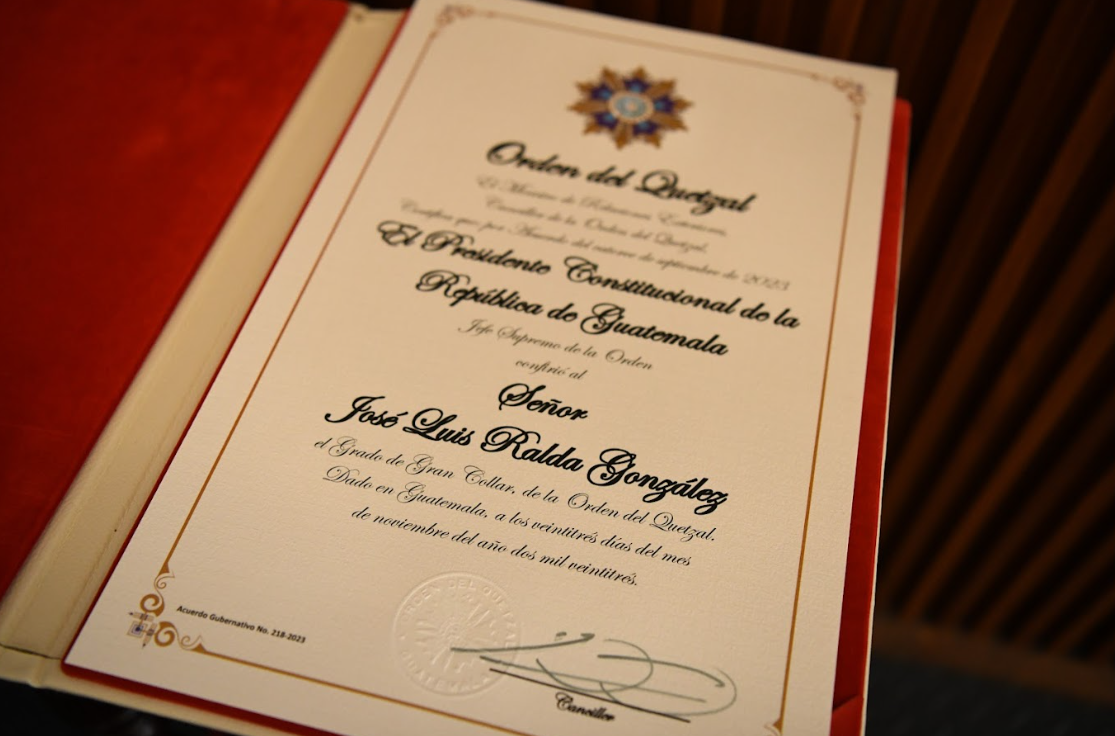 Orden del Quetzal
El Ministro de Relaciones Exteriores,
Canciller de la Orden del Quetzal,
Certifica que: por Acuerdo del catorce de septiembre de 2023
El Presidente Constitucional de la
República de Guatemala
Jefe Supremo de la Orden
confirió al
Señor
José Luis Ralda González
el Grado de Gran Collar, de la Orden del Quetzal.
Dado en Guatemala, a los veintitrés días del mes
de noviembre del año dos mil veintitrés.
ORDEN DEL QUETZAL
GUATEMALA
Acuerdo Gubernativo No. 218-2023
Canciller